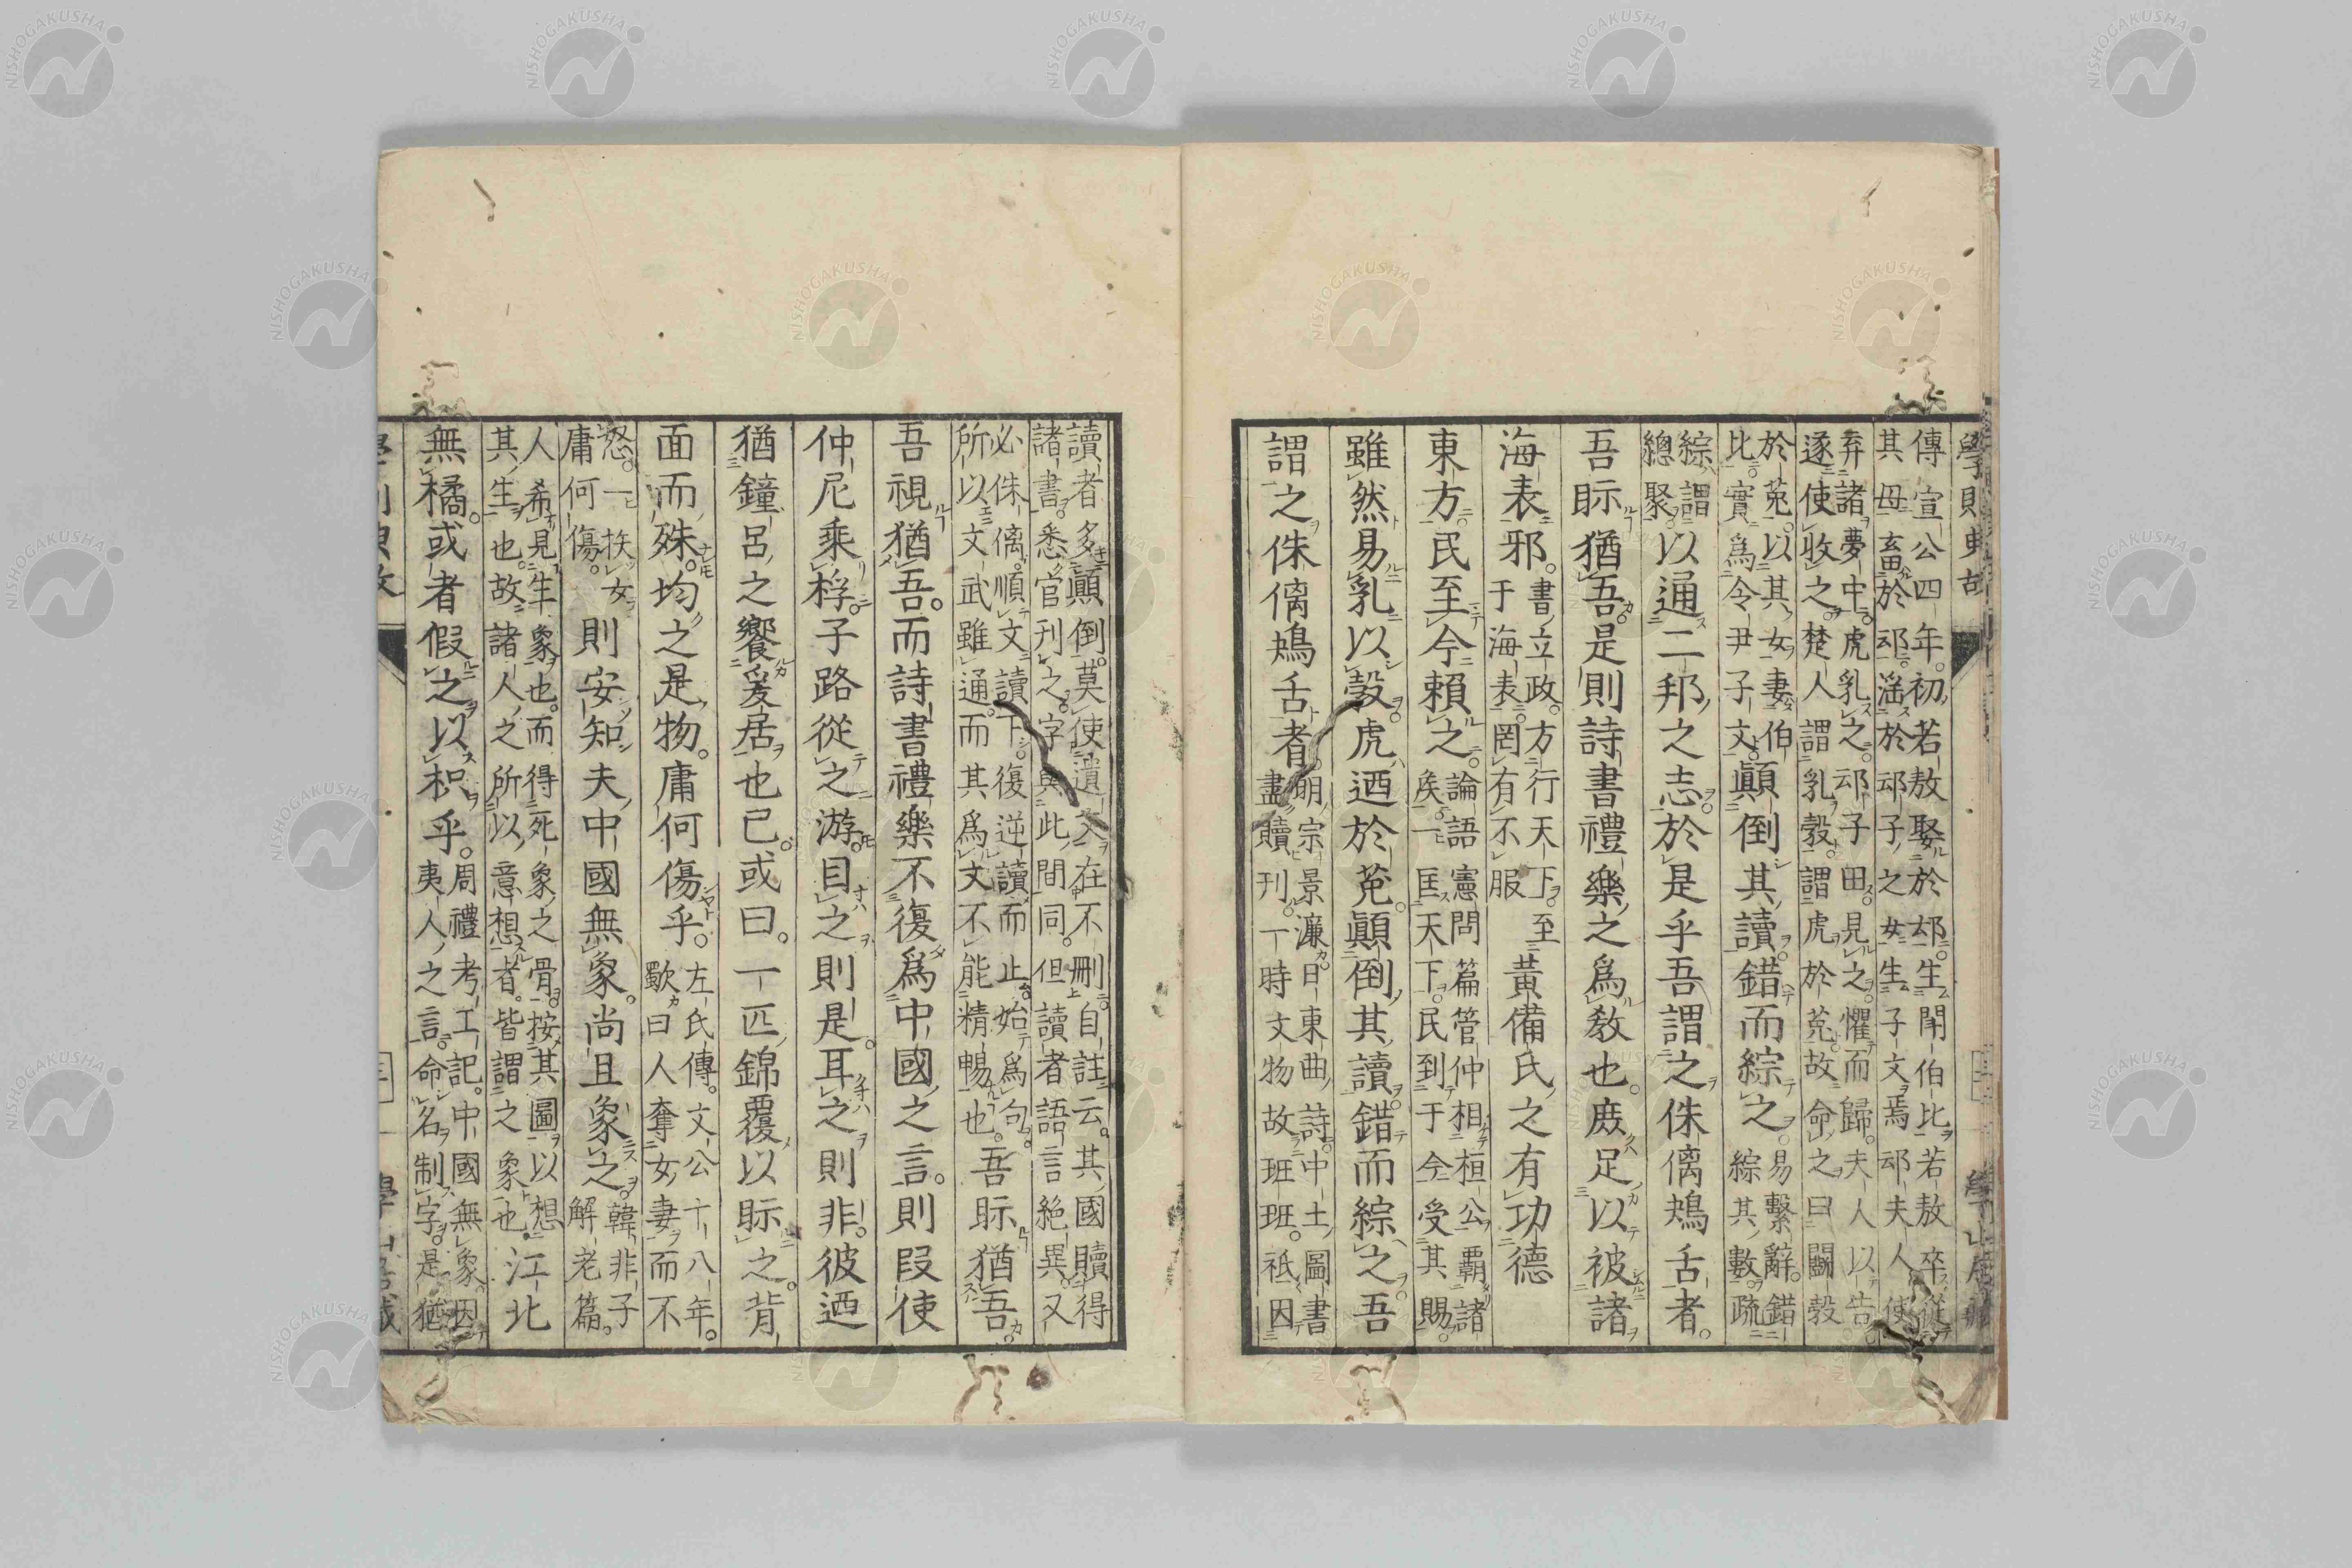 傳宣公四年。初若敖娶於䢵。生鬪伯比。若敖卒。從
其母畜於䢵。滛於䢵子之女。生子文焉。䢵夫人使
弃諸夢中。虎乳之。䢵子田。見之。懼而歸。夫人以告。
遂使收之。楚人謂乳穀。謂虎於菟。故命之曰鬪穀
於菟。以其女妻伯
比。實爲令尹子文。顚倒其讀。錯而綜之易繫辭。錯
綜其數。疏
綜謂
總聚以通二邦之志。於是乎吾謂之侏𠌯鴂舌者。
吾眎猶吾。是則詩書禮樂之爲敎也。庶足以被諸
海表邪。書立政。方行天下。至
于海表。罔有不服黃備氏之有功德
東方民至今賴之。論語憲問篇管仲相桓公。覇諸
矦一匡天下。民到于今受其賜。
雖然易乳以穀。虎迺於菟。顚倒其讀。錯而綜之。吾
謂之侏𠌯鴂舌者。明宗景濂日東曲詩。中土圖書
盡贖刊。一時文物故班班。祇因
讀者多顚倒。莫使遺文在不刪。自註云。其國贖得
諸書。悉官刊之。字與此間同。但讀者語言絕異。又
必侏𠌯。順文讀下。復逆讀而止。始爲句。
所以文武雖通。而其爲文不能精暢也。吾眎猶吾。
吾視猶吾。而詩書禮樂不復爲中國之言。則叚使
仲尼乘桴。子路從之游。目之則是。耳之則非。彼迺
猶鐘呂之饗爰居也已。或曰。一匹錦覆以眎之。背
面而殊。均之是物。庸何傷乎。左氏傳。文公十八年。
歜曰人奪女妻而不
怒。一抶女
庸何傷。則安知夫中國無象。尚且象之韓非子
解老篇。
人希見生象也。而得死象之骨。按其圖以想
其生也。故諸人之所以意想者。皆謂之象也。江北
無橘。或者假之以枳乎。周禮考工記。中國無象。因
夷人之言。命名制字。是猶